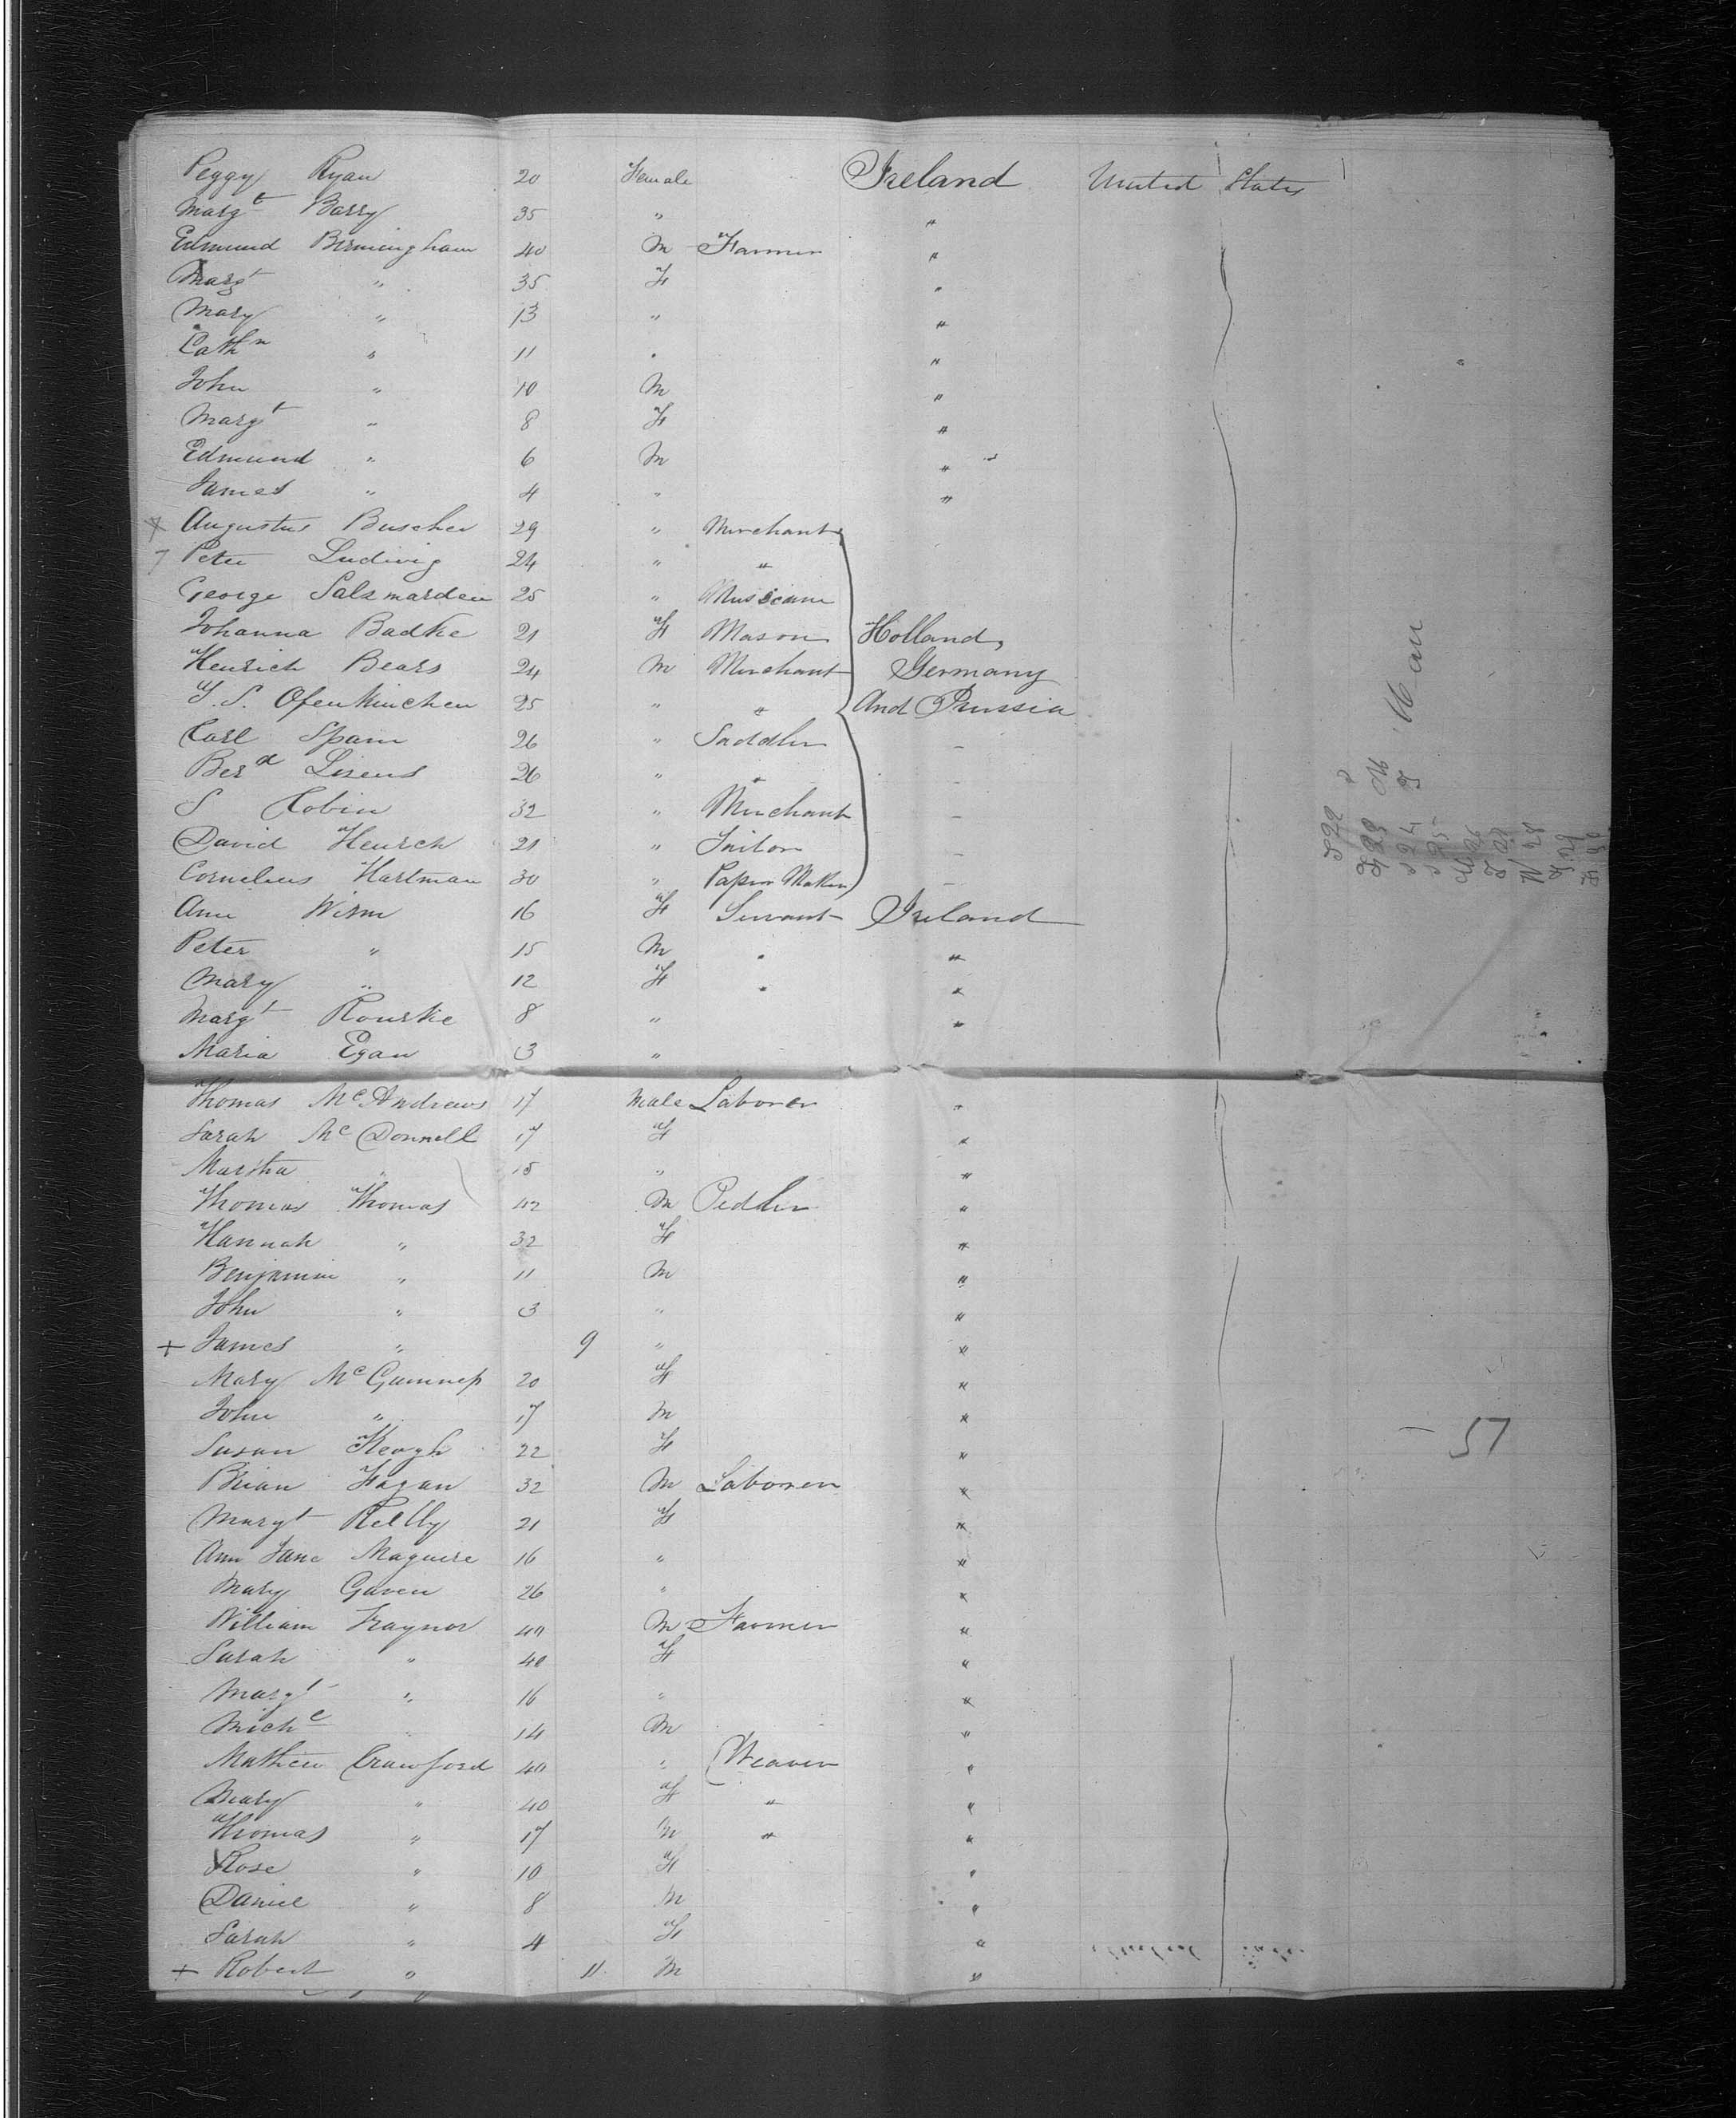 Peggy Ryan 20 Female Ireland United States
Margt Barry 35 " "
Edmund Birmingham 40 M Farmer "
Margt " 35 F "
Mary " 13 " "
Cathn " 11 " "
John " 10 M "
Margt " 8 F "
Edmund " 6 M "
James " 4 " "
Augustus Buscher 29 " Merchant
Peter Ludwig 24 " "
George Salzmarden 25 " Musician
Johanna Badke 21 F Mason Holland,
Henrich Bears 24 M Merchant Germany
25 " " And Prussia
Carl Spam 26 " Saddler
Berd 26 " "
S Cobin 32 " Merchant
David Heusch 21 " Tailor
Cornelius Hartman 30 " Paper Maker
Ann Wisn 16 F Servant Ireland
Peter " 15 M " "
Mary " 12 F " "
Margt Rourke 8 " "
Maria Egan 3 "
Thomas McAndrews 17 Male Laborer "
Sarah McDonnell 17 F "
Martha " 15 " "
Thomas Thomas 42 M Pedler "
Hannah " 32 F "
Benjamin " 11 M "
John " 3 " "
+ James " 9 " "
Mary 20 F "
John " 17 M "
Susan Keogh 22 F "
Brian Fagan 32 M Laborer "
Margt Reilly 21 F "
Ann Jane Maguire 16 " "
Mary Gaven 26 " "
William Traynor 40 M Farmer "
Sarah " 40 F "
Margt " 16 " "
Michl " 14 M "
Mathew Crawford 40 " Weaver "
Mary " 40 F " "
Thomas " 17 M " "
Rose " 10 F "
Daniel " 8 M "
Sarah " 4 F "
+ Robert " 11 M "
57